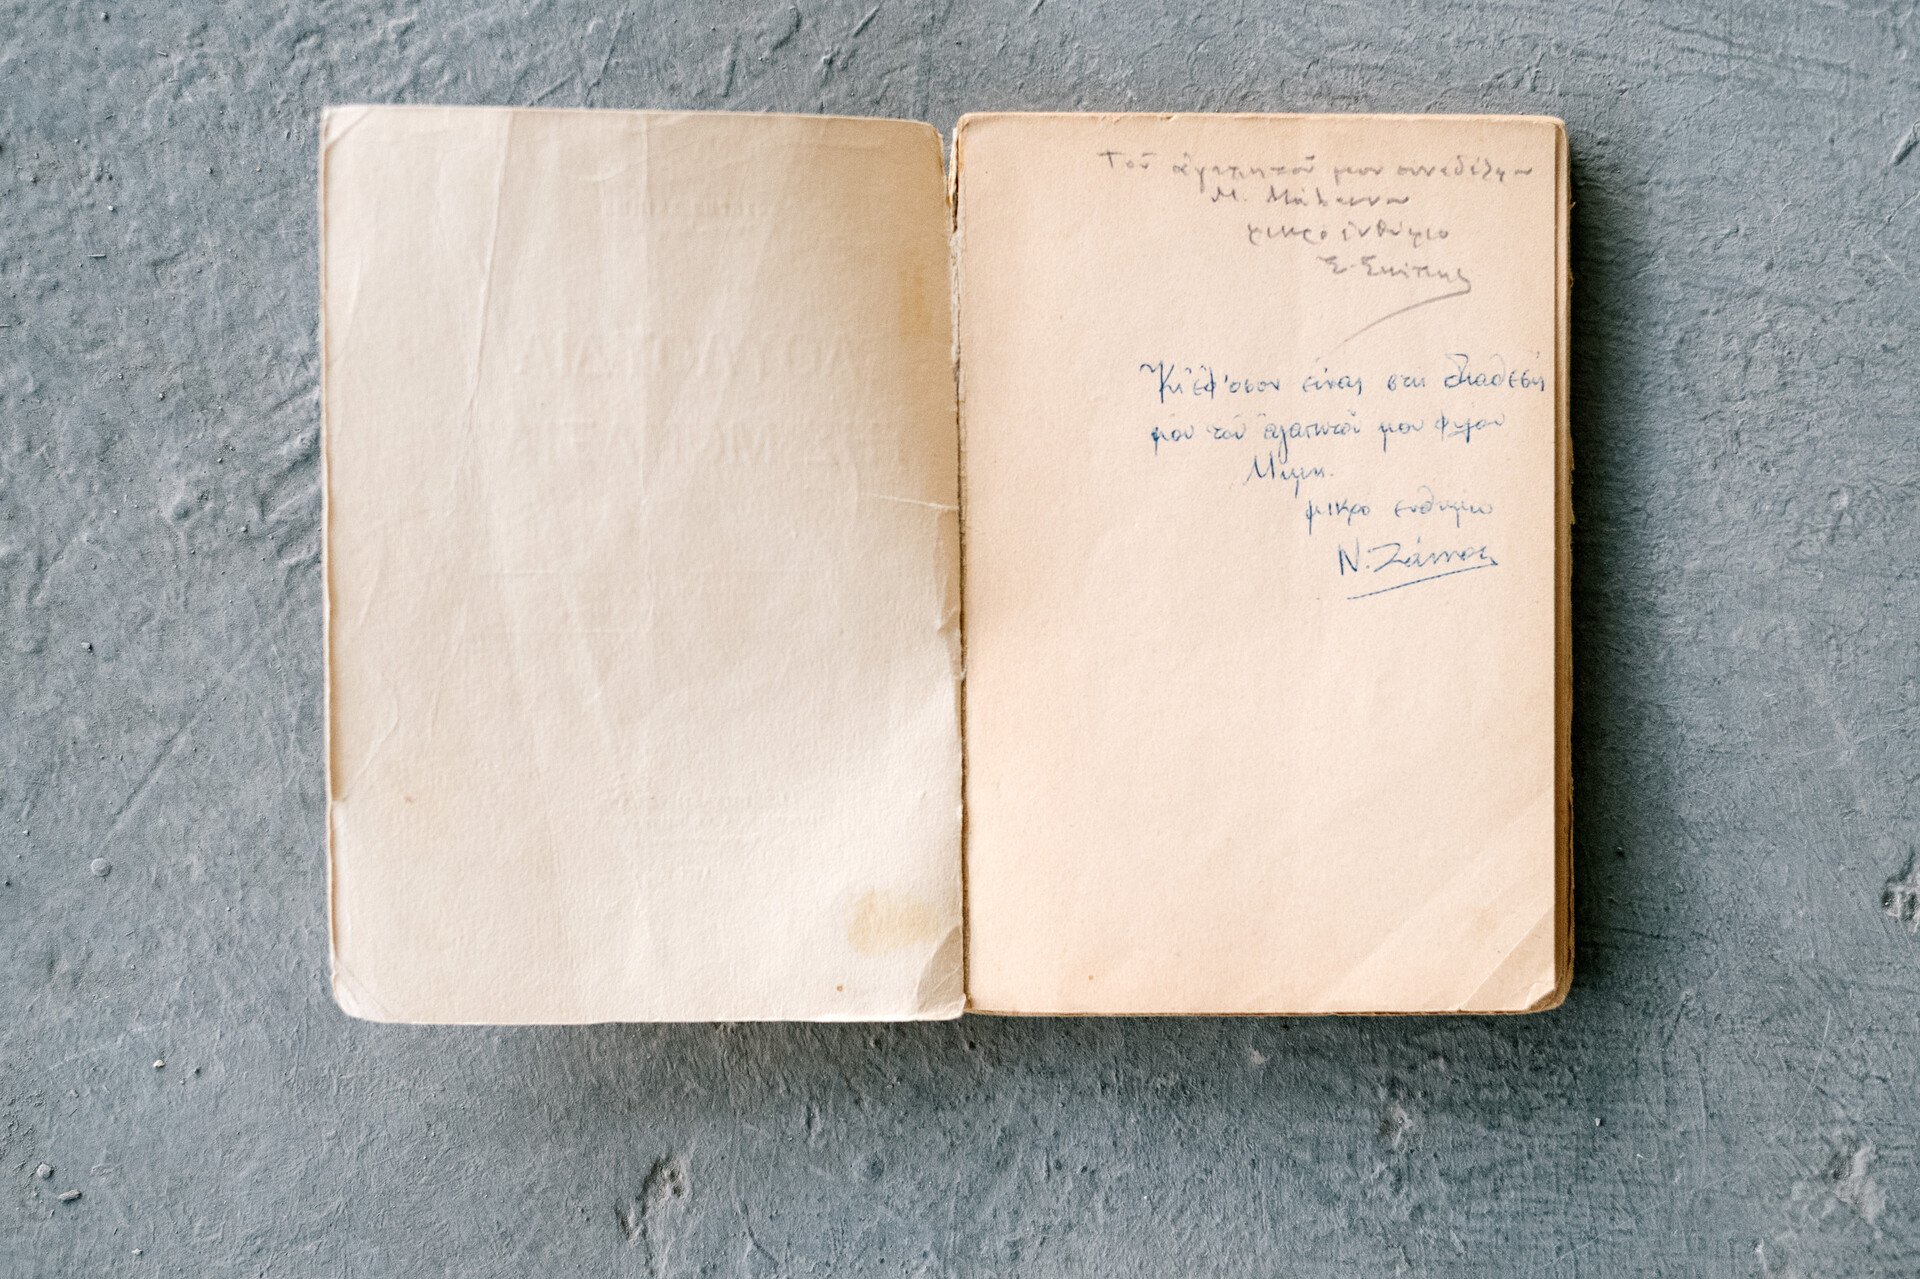 Τοῦ ἀγαπητοῦ μου συναδέλφου
Μ.
μικρο ἐνθύμιο
Σ. Σκίπης
Κι' ἐφ' ὅσον εἶναι στη διάθεσή
μου τοῦ ἀγαπητοῦ μου φίλου
Μιμη.
μικρο ενθυμιο